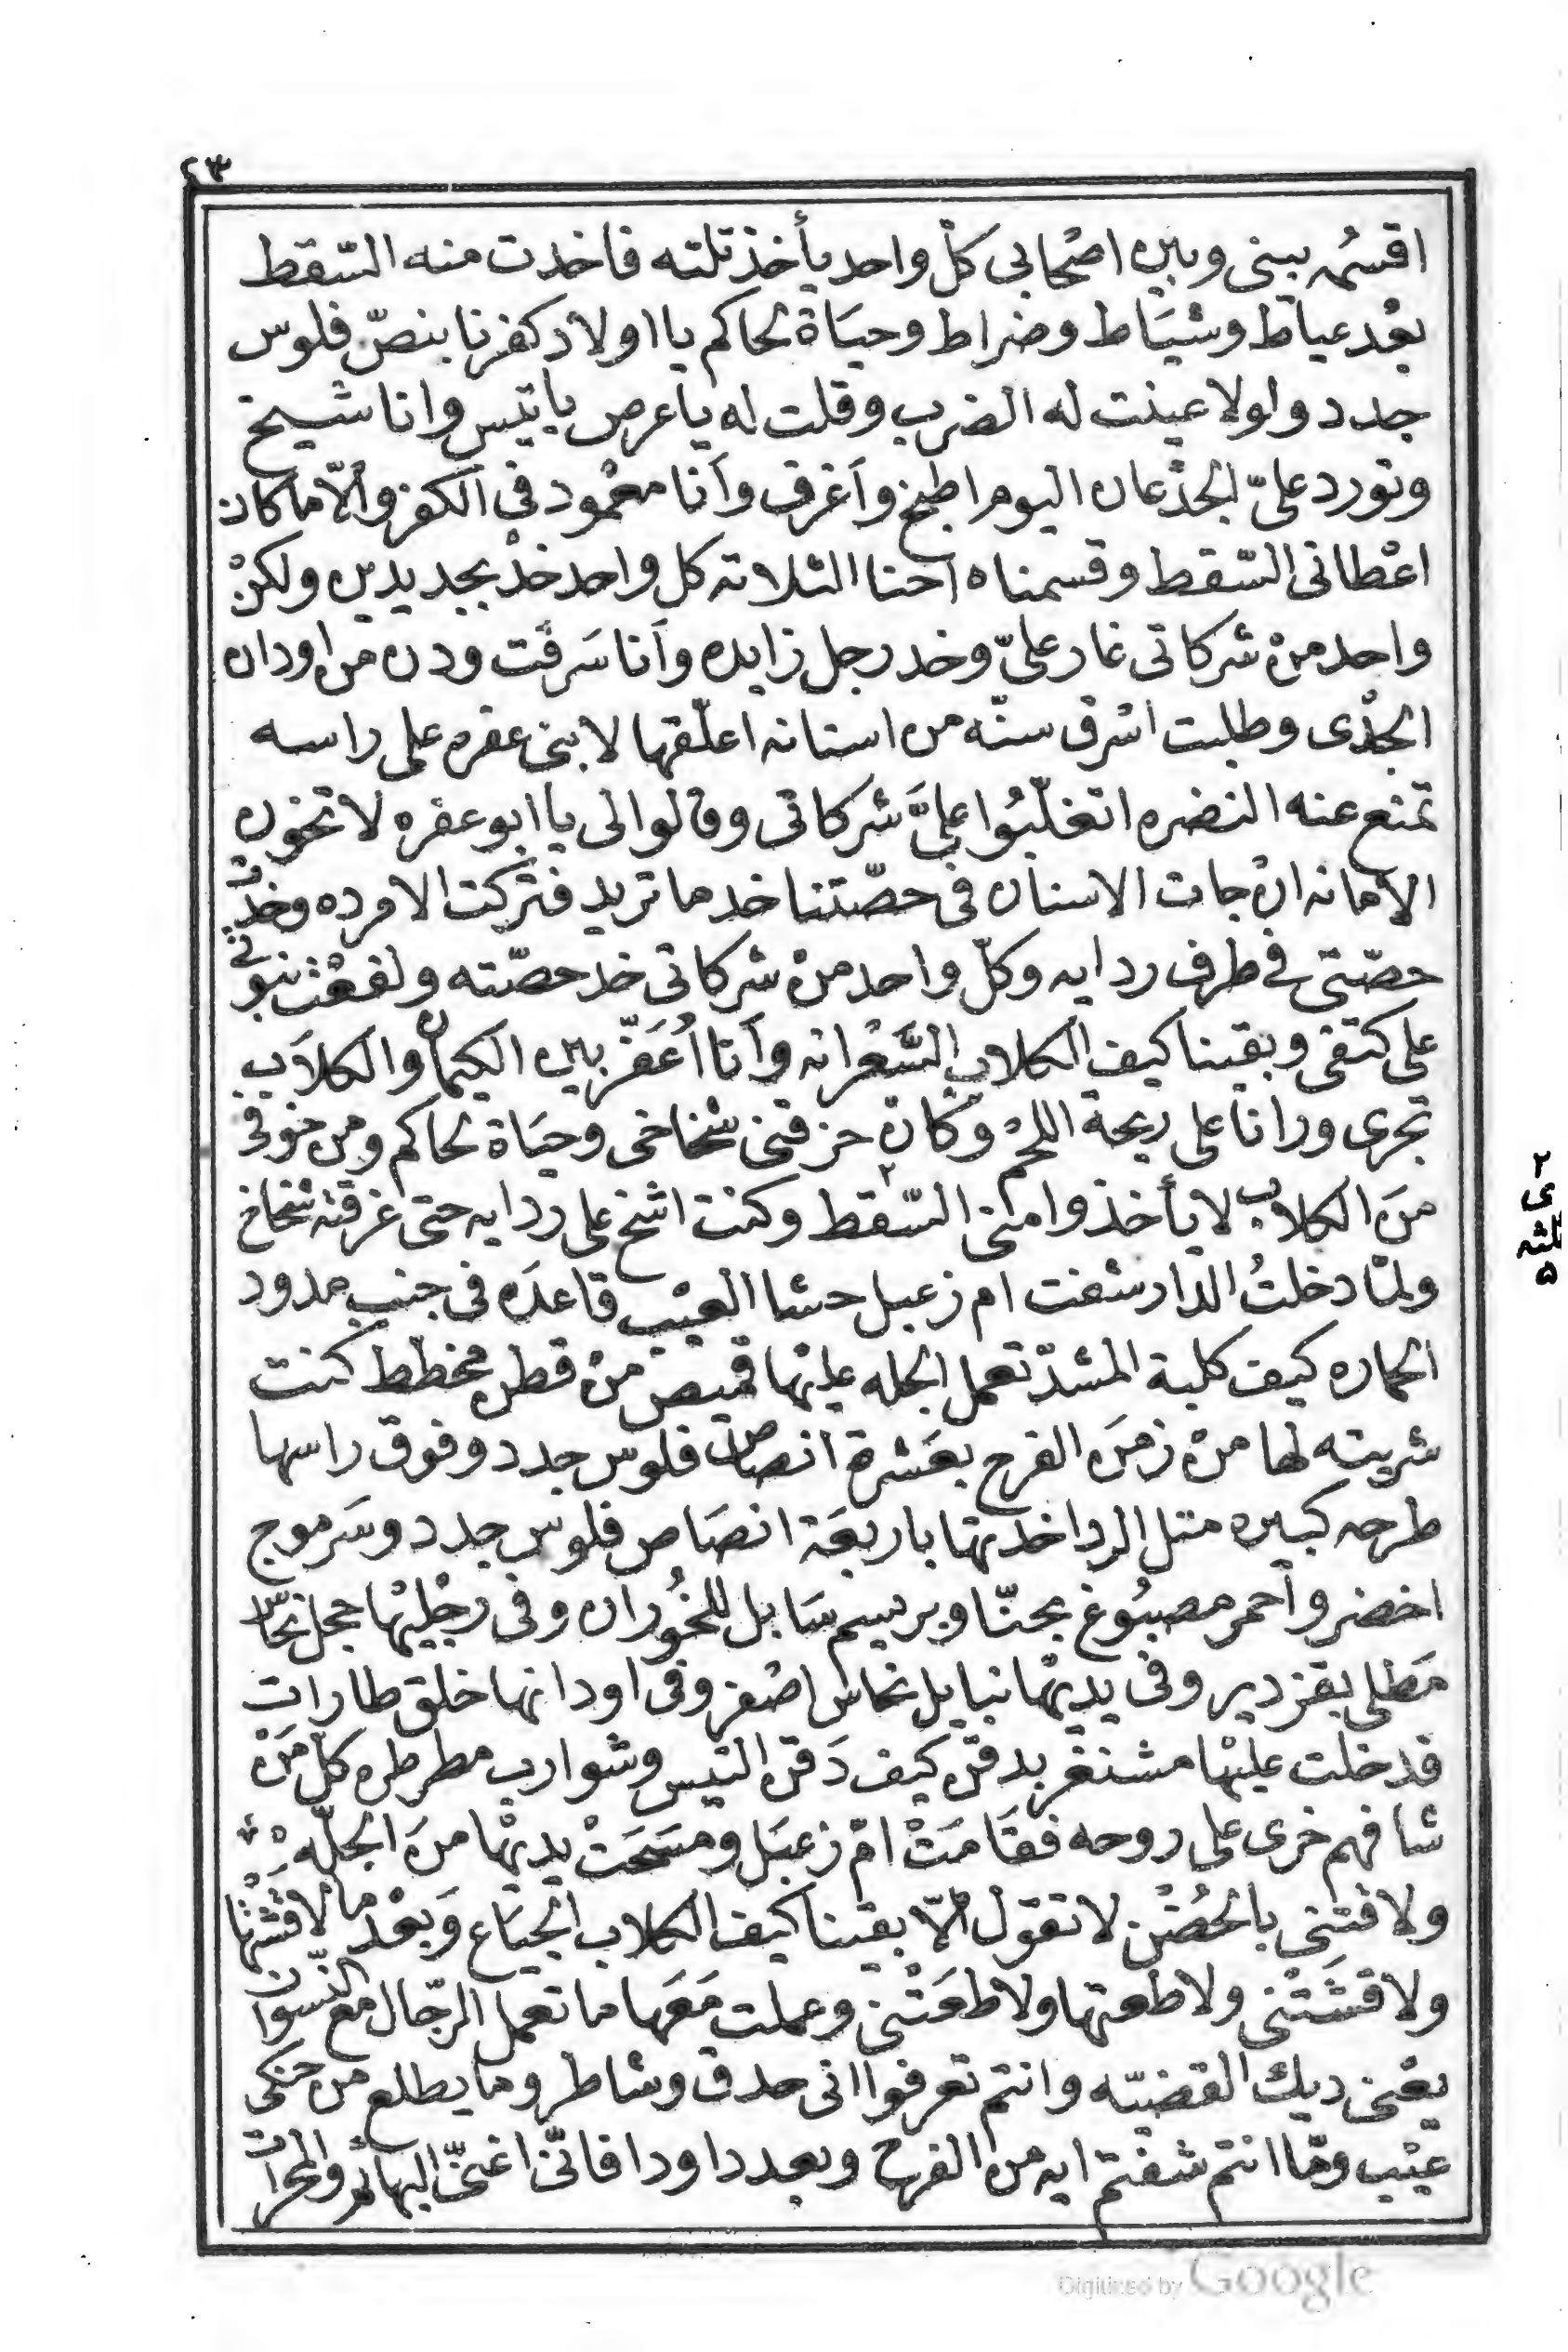 ٢٣
اقسمُه بينى وبين اصْحابى كلّ واحد يأخذ تلته فاخدت منه السّقط
بعْد عياط وشيَاط وضراط وحيَاة لحاكم يا اولاد كفرنا بنصّ فلوس
جدد ولولا عينت له الضرب وقلت له يا عرص يا تيس وانا شيخ
وتورد علىّ الجدْعان اليوم اطبخ واَغرف واَنا معْمود فى الكفر والّا ما كان
اعْطانى السّقط وقسمناه احنا التلاته كل واحد خدْ بجديدين ولكنْ
واحد منْ شركاتى غار علىّ وخد رجل زايده واَنا سَرقْت ودن من اودان
الجدْى وطلبت اسْرق سنّه من اسنانه اعلّقها لابنى عفره على راسه
تمنع عنه النضره اتغلّبُوا علىَّ شركاتى وقالوا لى يا ابو عفره لا تخون
الامانه انْ جات الاسنان فى حصّتنا خد ما تريد فترْكت الامرده وخدْت
حصّتى فى طرف ردايه وكلّ واحد منْ شركاتى خد حصّته ولفعْت نبوتى
على كتفى وبقينا كيف الكلاب السَّعْرانه واَنا اُعَفّر بين الكيمان والكلاَب
تجرى ورانا على ريحة اللحمْ وكان حزقنى شخاخى وحيَاة لحاكم ومن خوفى
منَ الكلاب لا يأخذوا منى السّقط وكنت اشخ على ردايه حتى غرقته شخاخ
ولمّا دخلتُ الدار شفت ام زعبل حشا العيْب قاعدَه فى جنب مدود
الحماره كيف كلبة المشدّ تعمل الجله عليْها قميص منْ قطن مخطط كنت
شريته لها منْ زمَن الفرح بعَشرة انصاص فلوس جدد وفوق راسها
طرحه كبيره متل الردا خدتها باربعَة انصَاص فلوس جدد وسَرموج
اخضر واَحمر مصبُوغ بحنّا وبرسيم سَابل للخُوران وفى رجْليْها حجل نحاس
مَطلى بقزدير وفى يديْها نبايل نحاس اصْفر وفى اودانها خلق طارات
فدخلت عليْها مشنغر بدقن كيف دَقن التيس وشوارب مطرطره كلّ مَنْ
شافهم خرى على روحه فقَامَتْ امّ زعبَل ومسَحَتْ يديْها منَ الجلّه
ولاقتنى بالحُضْن لا تقولْ الّا بقينا كيف الكلاب الجيَاع وَبعْد ما لاقشْتها
ولاقشَتْنى ولاطعتها ولاطعَتْنى وعملت مَعَها ما تعمل الرّجال مع النّسوان
يعْنى ديك القضيّه وانتم تعرفوا انى حدق وشاطر وما يطلع من حنكى
عيْب ومّا انتم شفتم ايه من الفرح وبعد دا ودا فانّى اغنىّ البهايم والمحرات
٢
ى
تلثه
٥
Digitized by Google